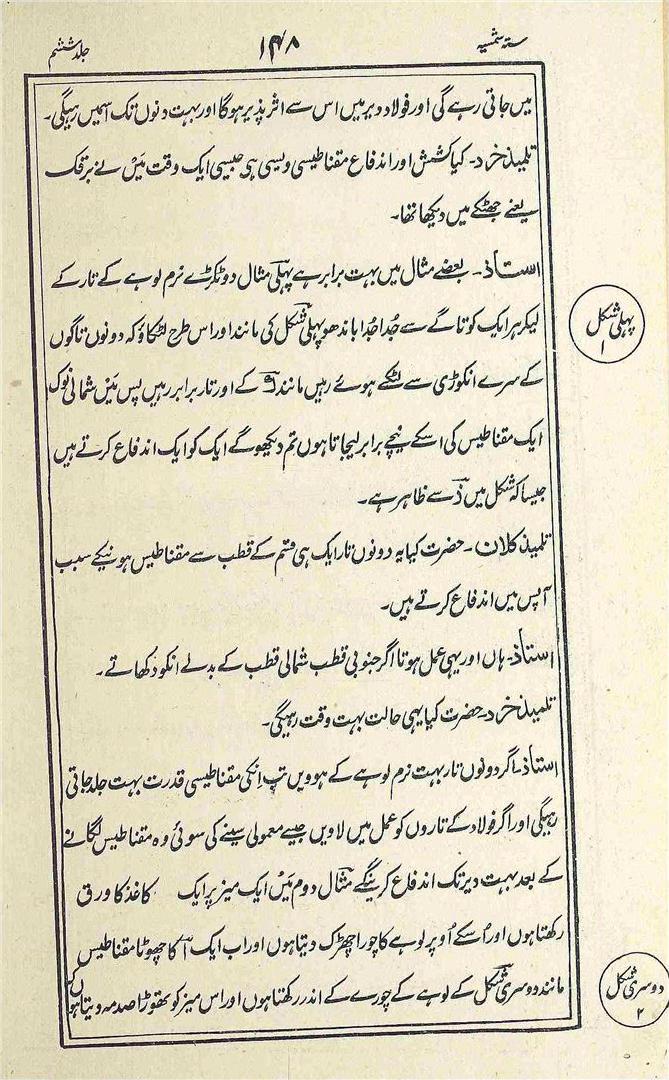 ستہ شمسیہ
۱۴۸
جلد ششم
میں جاتی رہے گی اور فولاد دیر میں اس سے اثر پذیر ہوگا اور بہت دنوں تک اسمیں رہیگی۔
تلمیذ خرد۔ کیا کشش اور اندفاع مقناطیسی ویسی ہی جیسی ایک وقت میں نے برفک
یعنے جھٹکے میں دیکھا تھا۔
استاذ۔ بعضے مثال میں بہت برابر ہے پہلی مثال دو ٹکڑے نرم لوہے کے تار کے
لیکر ہر ایک کو تاگے سے جُدا جُدا باندھو پہلی شکل کی مانند اور اس طرح لٹکاؤ کہ دونوں تاگوں
کے سرے انکوڑی سے لٹکے ہوئے رہیں مانند کے اور تار برابر رہیں پس میں شمالی نوک
ایک مقناطیس کی اسکے نیچے برابر لیجاتا ہوں تم دیکھوگے ایک کو ایک اندفاع کرتے ہیں
جیسا کہ شکل میں ذ سے ظاہر ہے۔
تلمیذ کلان۔ حضرت کیا یہ دونوں تار ایک ہی قسم کے قطب سے مقناطیس ہونیکے سبب
آپس میں اندفاع کرتے ہیں۔
استاذ۔ ہاں اور یہی عمل ہوتا اگر جنوبی قطب شمالی قطب کے بدلے انکو دکھاتے۔
تلمیذ خرد۔ حضرت کیا یہی حالت بہت وقت رہیگی۔
استاذ۔ اگر دونوں تار بہت نرم لوہے کے ہوویں تب اِنکی مقناطیسی قدرت بہت جلد جاتی
رہیگی اور اگر فولاد کے تاروں کو عمل میں لاویں جیسے معمولی سینے کی سوئی وہ مقناطیس لگانے
کے بعد بہت دیر تک اندفاع کرینگے مثال دوم میں ایک میز پر ایک کاغذ کا ورق
رکھتا ہوں اور اُسکے اُوپر لوہے کا چورا چھڑک دیتا ہوں اور اب ایک آ کا چھوٹا مقناطیس
مانند دوسری شکل کے لوہے کے چورے کے اندر رکھتا ہوں اور اس میز کو تھوڑا صدمہ دیتا ہوں
پہلی شکل
۱
دوسری شکل
۲